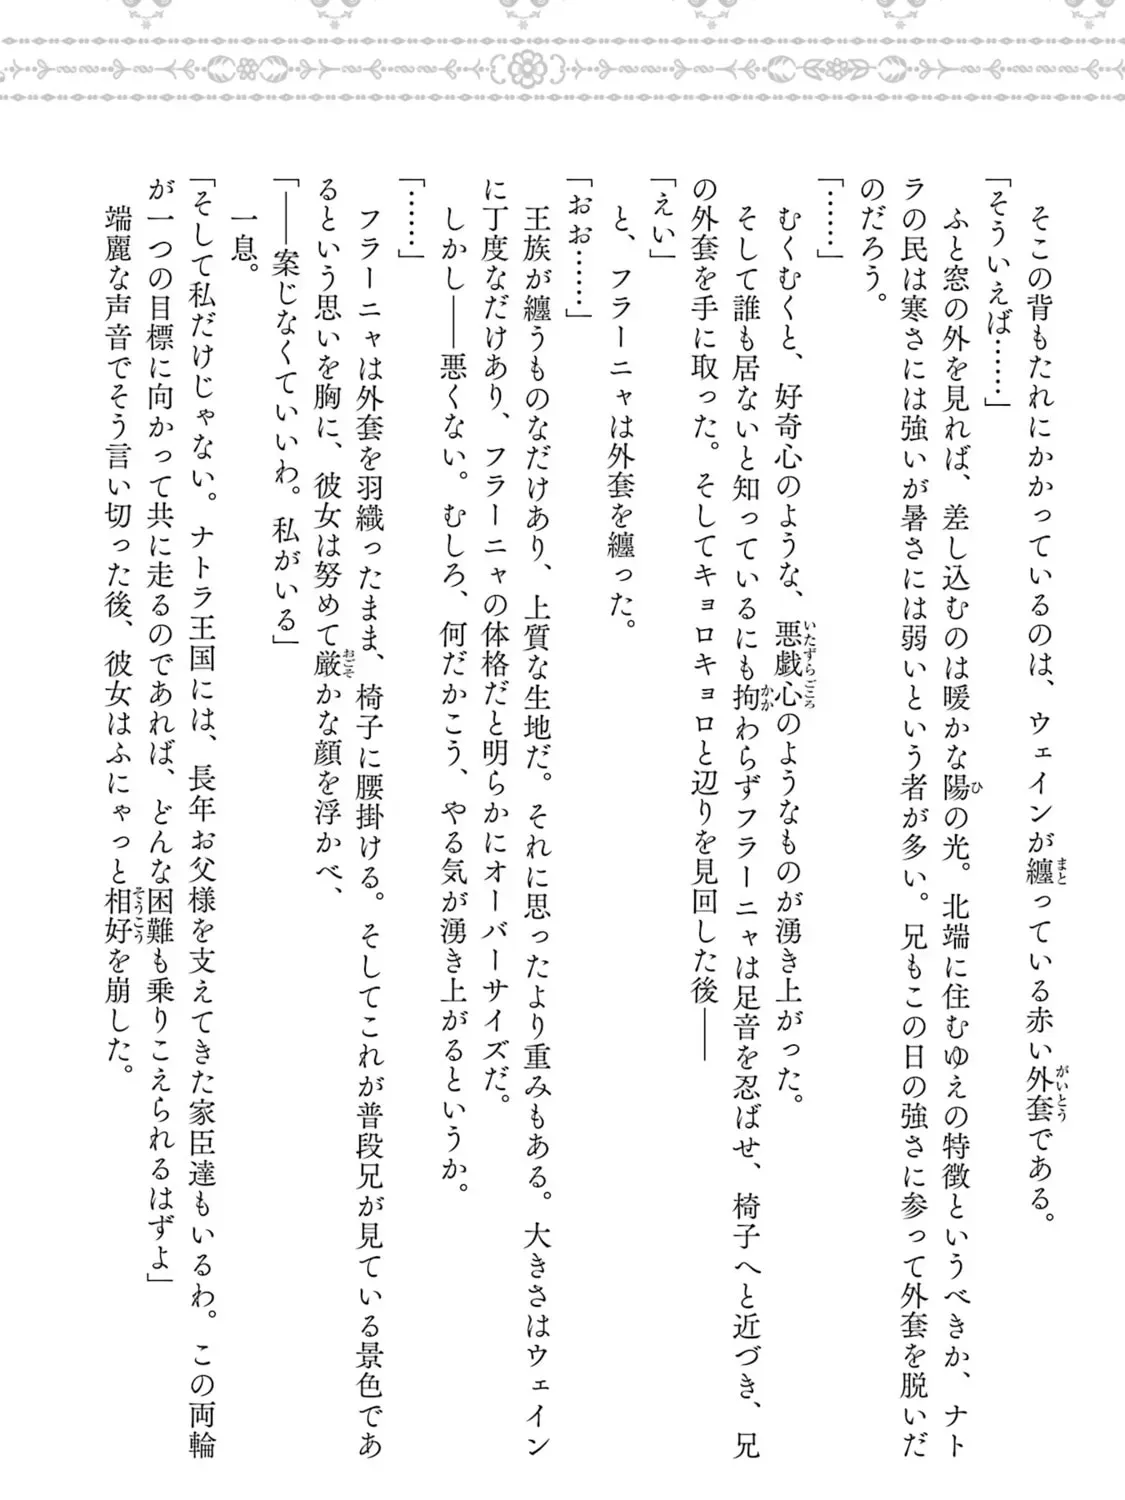 そこの背もたれにかかっているのは、ウェインが纏っている赤い外套である。
「そういえば……」
ふと窓の外を見れば、差し込むのは暖かな陽の光。北端に住むゆえの特徴というべきか、ナト
ラの民は寒さには強いが暑さには弱いという者が多い。兄もこの日の強さに参って外套を脱いだ
のだろう。
「……」
むくむくと、好奇心のような、悪戯心のようなものが湧き上がった。
そして誰も居ないと知っているにも拘わらずフラーニャは足音を忍ばせ、椅子へと近づき、兄
の外套を手に取った。そしてキョロキョロと辺りを見回した後――
「えい」
と、フラーニャは外套を纏った。
「おお……」
王族が纏うものなだけあり、上質な生地だ。それに思ったより重みもある。大きさはウェイン
に丁度なだけあり、フラーニャの体格だと明らかにオーバーサイズだ。
しかし――悪くない。むしろ、何だかこう、やる気が湧き上がるというか。
「……」
フラーニャは外套を羽織ったまま、椅子に腰掛ける。そしてこれが普段兄が見ている景色であ
るという思いを胸に、彼女は努めて厳かな顔を浮かべ、
「――案じなくていいわ。私がいる」
一息。
「そして私だけじゃない。ナトラ王国には、長年お父様を支えてきた家臣達もいるわ。この両輪
が一つの目標に向かって共に走るのであれば、どんな困難も乗りこえられるはずよ」
端麗な声音でそう言い切った後、彼女はふにゃっと相好を崩した。